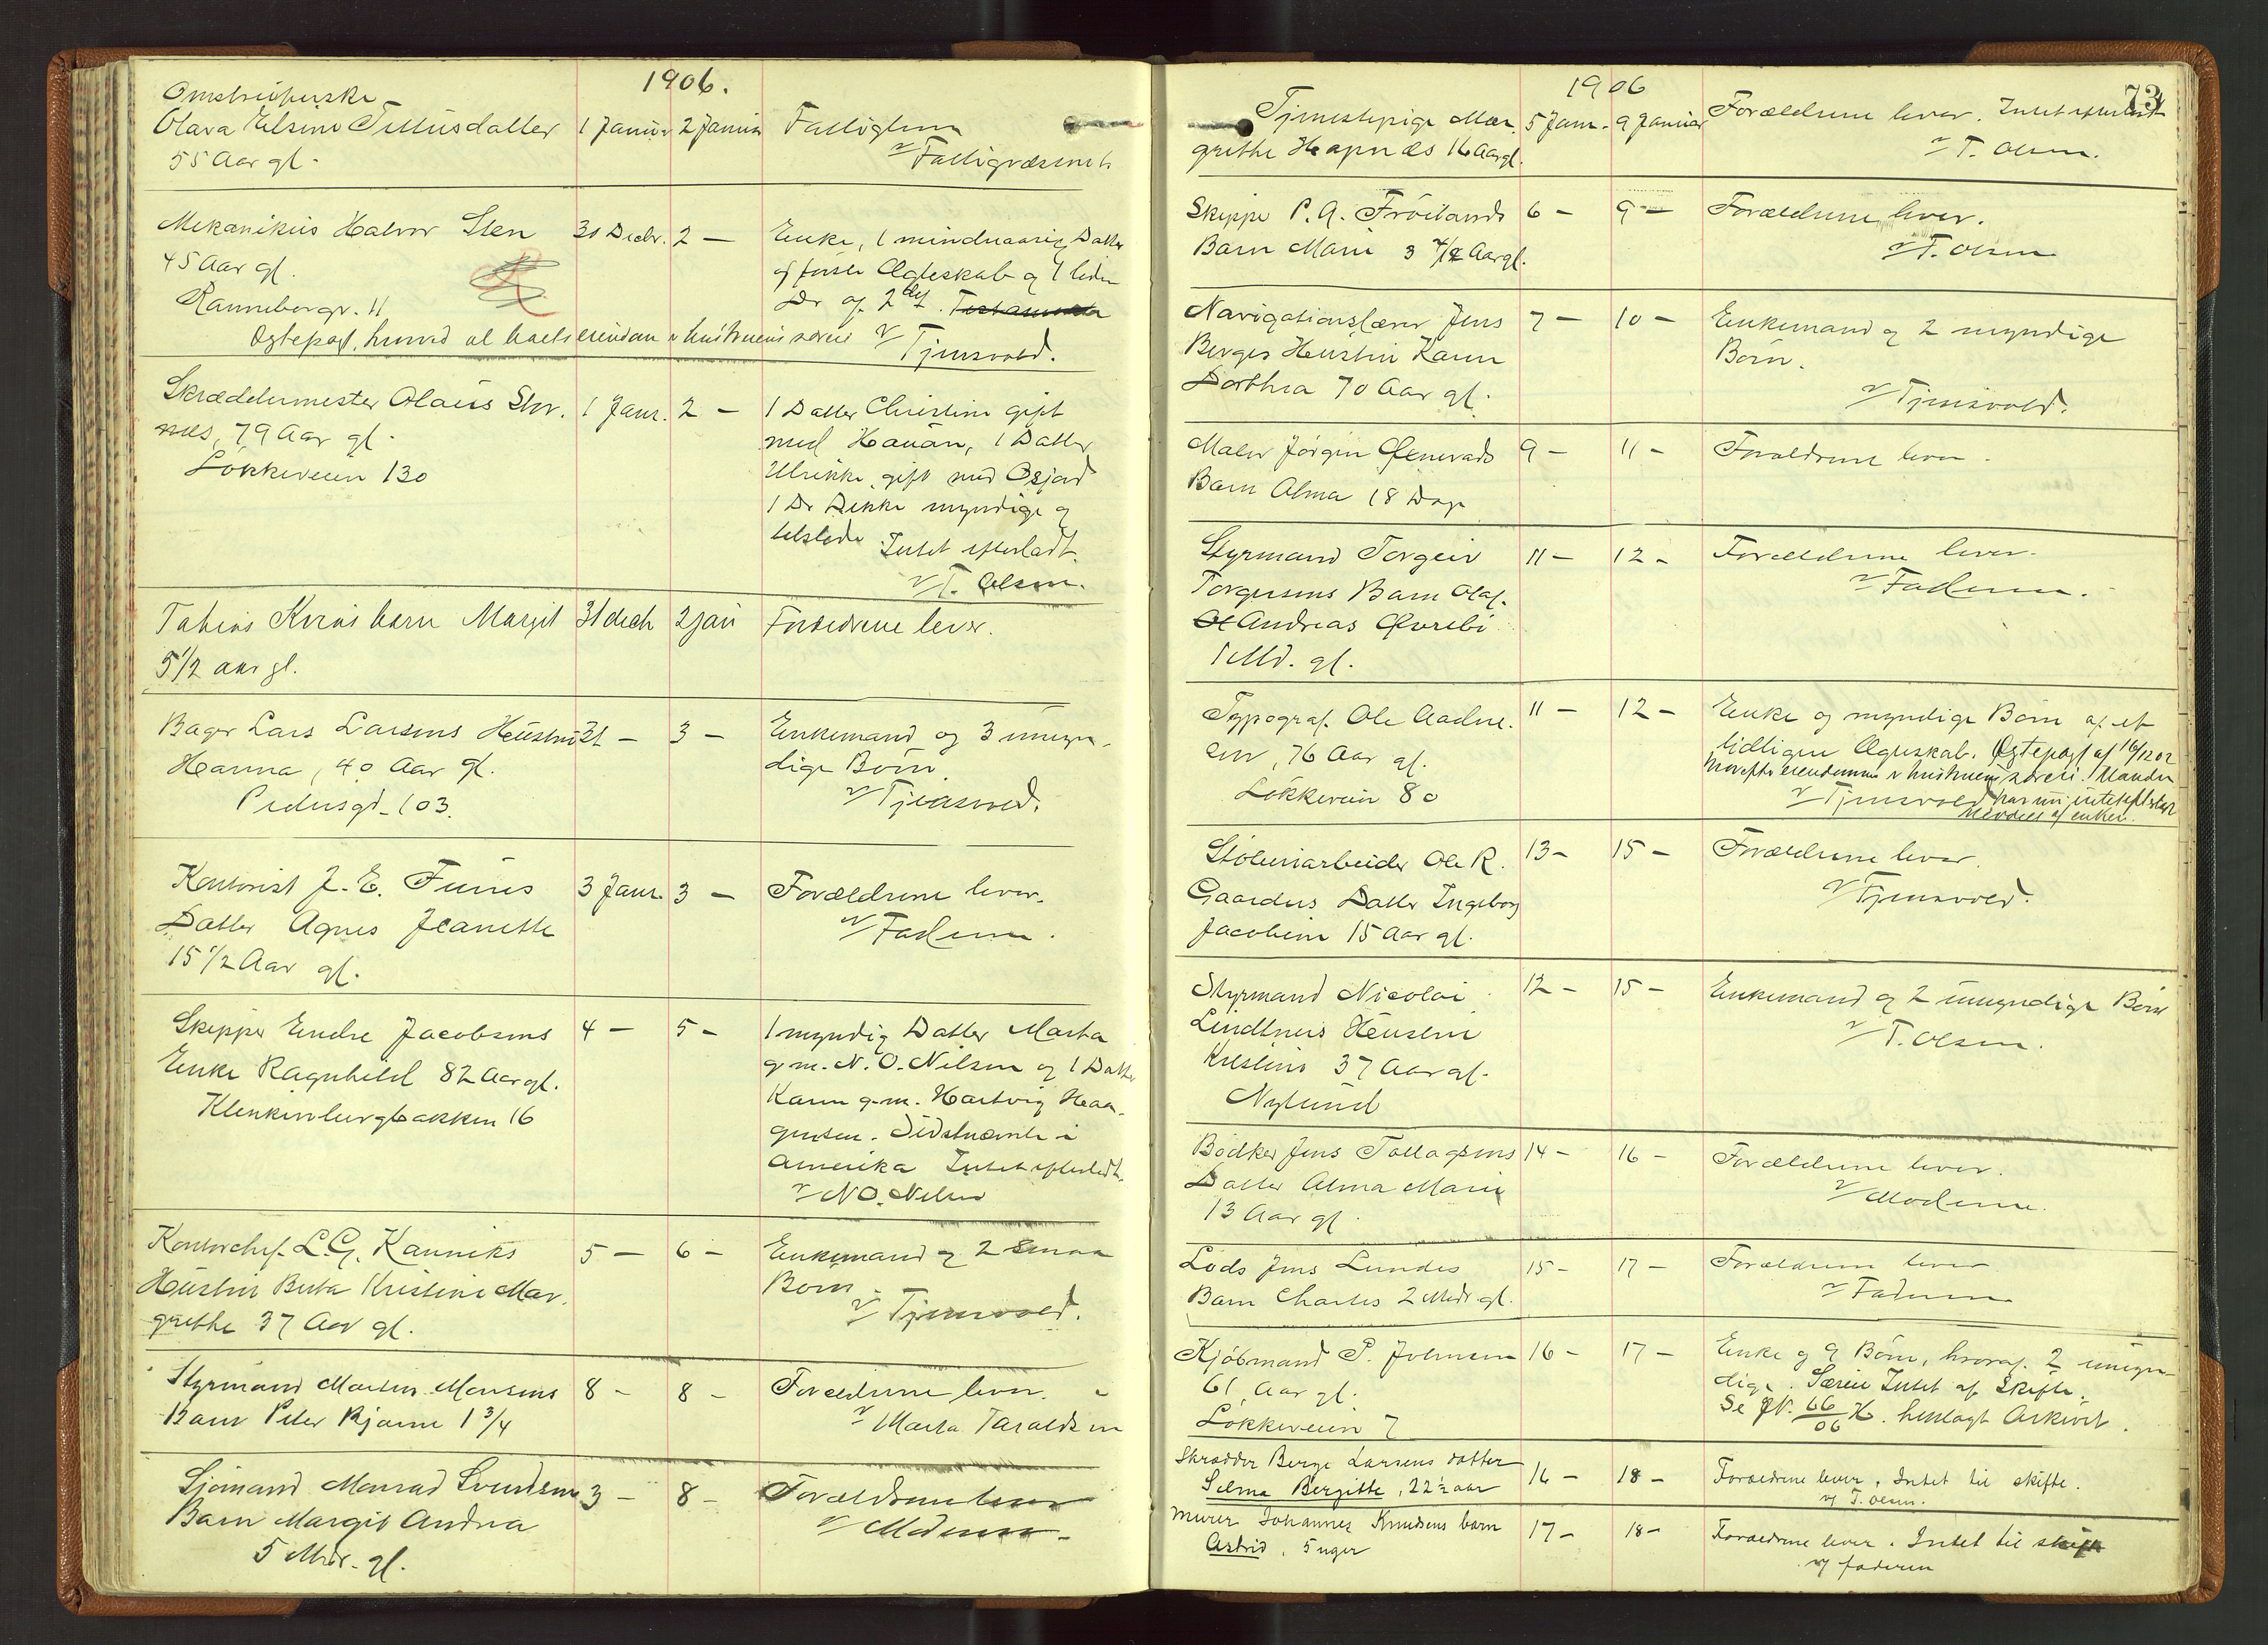 1906.
Olava Elsine Tittusdatter 1 Januar 2 Januar Fattiglem
55 Aar gl. v/ Fattigvæsenet
Mekanikus Halvor Sten 31 Decbr. 2 — Enke, 1 mindreaarig Datter
45 Aar gl. af første Ægteskab og 1 liden
Rannebergr. 11 Dr af 2det.
Ægtepagt, hvorved al boets eiendom er hustruens særeie v/ Tjensvold.
Skræddermester Olaus Stor- 1 Janr. 2 — 1 Datter Christine gift
næs, 79 Aar gl. med Hauan, 1 Datter
Løkkeveien 130 Ulrikke, gift med
1 Dr myndige og
tilstede. Intet efterladt.
v/ T. Olsen.
Tobias barn Margit 31 decb 2 jan Forældrene lever.
5 1/2 aar gl.
Bager Lars Larsens Hustru 31 — 3 — Enkemand og 3 umyn-
Hanna, 40 Aar gl. dige Børn.
Pedersgd. 103. v/ Tjensvold.
Kontorist J. E. Funes 3 Janr. 3 — Forældrene lever.
Datter Agnes Jeanette v/ Faderen.
15 1/2 Aar gl.
Skipper Endre Jacobsens 4 — 5 — 1 myndig Datter Marta
Enke Ragnhild 82 Aar gl. g. m. N. O. Nilsen og 1 Datter
Klenkenbergbakken 16 Karen g. m. Hartvig Haa-
gensen. Sidstnævnte i
Amerika Intet efterladt.
v/ N O. Nilsen
Kontorchef L. G. Kanniks 5 — 6 — Enkemand og 2 smaa
Hustru Berta Kristine Mar- Børn.
grethe 37 Aar gl. v/ Tjensvold.
Styrmand Martin Monsens 8 — 8 — Forældrene lever.
Barn Peter Bjarne 1 3/4 v/ Marta Taraldsen
Sjømand Monrad Svendsens 3 — 8 — Forældrene lever
Barn Margit Andrea v/ Moderen
5 Mdr. gl.
1906
73
Tjenestepige Mar- 5 Janr. 9 Januar Forældrene lever. Intet efterladt
grethe Hapnæs 16 Aar gl. v/ T. Olsen.
Skipper P. A. Frøilands 6 — 9 — Forældrene lever.
Barn Marie 3 4/12 Aar gl. v/ T. Olsen
Navigationslærer Jens 7 — 10 — Enkemand og 2 myndige
Berges Hustru Karen Børn.
Dorthea 70 Aar gl. v/ Tjensvold.
Maler Jørgen 9 — 11 — Forældrene lever.
Barn Alma 18 Dage
Styrmand Torgeir 11 — 12 — Forældrene lever.
Torgersens Barn Olaf v/ Faderen.
Andreas Øvrebø
1 Md. gl.
Typograf Ole Aadne- 11 — 12 — Enke og myndige Børn af et
sen, 76 Aar gl. tidligere Ægteskab. Ægtepagt af 16/12 02
Løkkeveien 80 hvorefter eiendommen er hustruens særeie. Manden
v/ Tjensvold har intet efterladt
Meddelt af enken.
Støberiarbeider Ole R. 13 — 15 — Forældrene lever.
Gaarders Datter Ingeborg v/ Tjensvold.
Jacobine 15 Aar gl.
Styrmand Nicolai 12 — 15 — Enkemand og 2 umyndige Børn
Lindtners Hustru v/ T. Olsen.
Kristine 37 Aar gl.
Nylund
Bødker Jens Tollagsens 14 — 16 — Forældrene lever.
Datter Alma Marie v/ Moderen.
13 Aar gl.
Lods Jens Lundes 15 — 17 — Forældrene lever
Barn Charles 2 Mdr. gl. v/ Faderen
Kjøbmand P. Johnsen 16 — 17 — Enke og 9 Børn, hvoraf 2 umyn-
61 Aar gl. dige. Særeie Intet af Skifte.
Løkkeveien 7 Se JN. 66/06 H. henlagt Arkivet.
Skrædder Berge Larsens datter 16 — 18 — Forældrene lever. Intet til skifte.
Selma Bergitte, 22 1/2 aar v/ T. Olsen.
Murer Johannes Knudsens barn 17 — 18 — Forældrene lever. Intet til skifte
Astrid, 5 uger v/ faderen